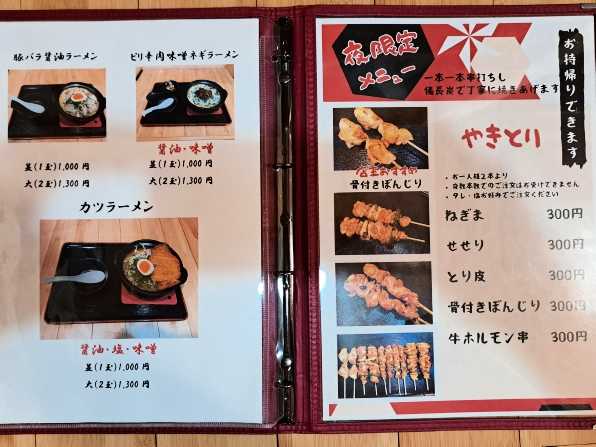 豚バラ醤油ラーメン
並(1玉)1,000円
大(2玉)1,300円
ピリ辛肉味噌ネギラーメン
醤油・味噌
並(1玉)1,000円
大(2玉)1,300円
カツラーメン
醤油・塩・味噌
並(1玉)1,000円
大(2玉)1,300円
夜限定
メニュー
お持帰りできます
一本一本串打ちし
備長炭で丁寧に焼きあげます
やきとり
・お一人様2本より
・奇数本数でのご注文はお受けできません
・タレ・塩お好みでご注文ください
店主おすすめ
骨付きぼんじり
ねぎま 300円
せせり 300円
とり皮 300円
骨付きぼんじり 300円
牛ホルモン串 300円